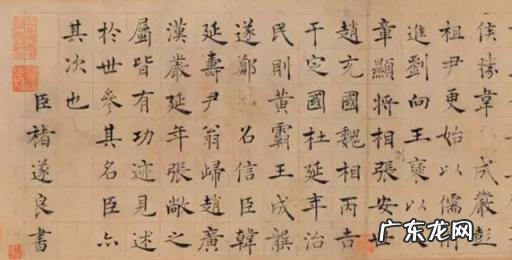 侯勝韋 成嚴彭
祖尹更始以儒術
進劉向王襃以
章顯將相張安世
趙充國魏相丙吉
于定國杜延年治
民則黃霸王成龔
遂鄭 名信臣韓
延壽尹翁歸趙廣
漢嚴延年張敞之
屬皆有功迹見述
於世參其名臣亦
其次也
臣褚遂良書
广东龙网